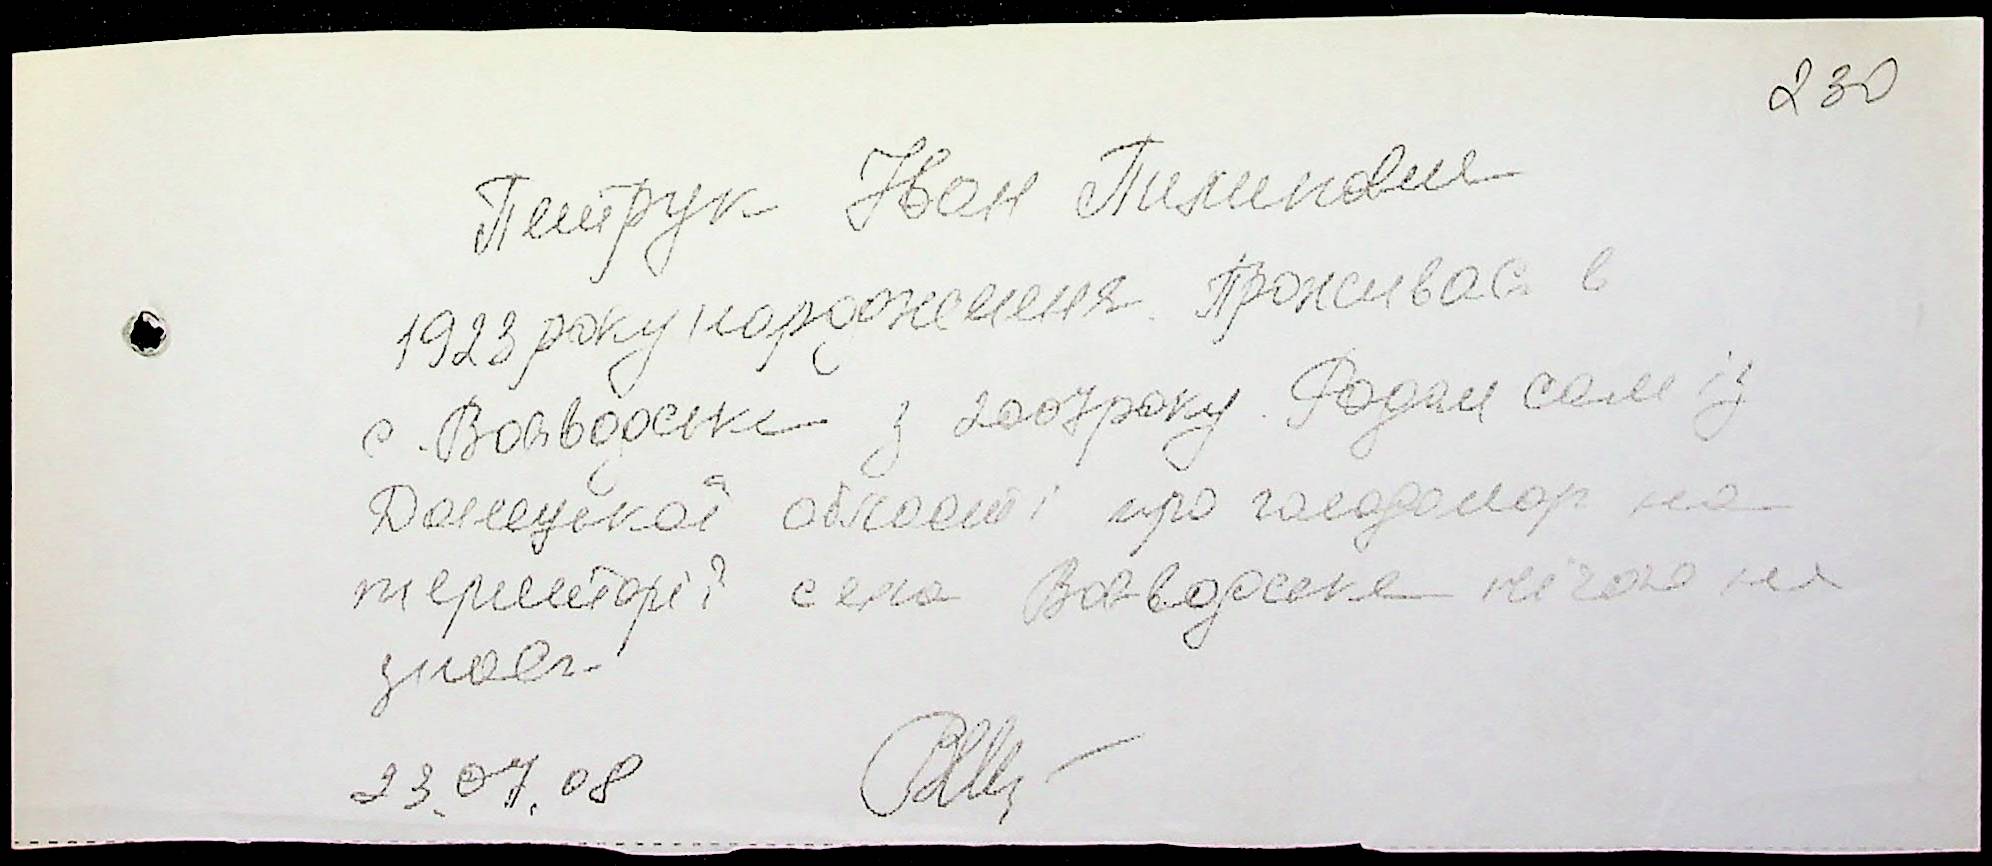 230
Петрук Іван Пилипович
1923 року народження. Проживає в
с. Воєводське з 2007 року. Родом сам із
Донецької області про голодомор на
території села Воєводське нічого не
знає.
23.07.08